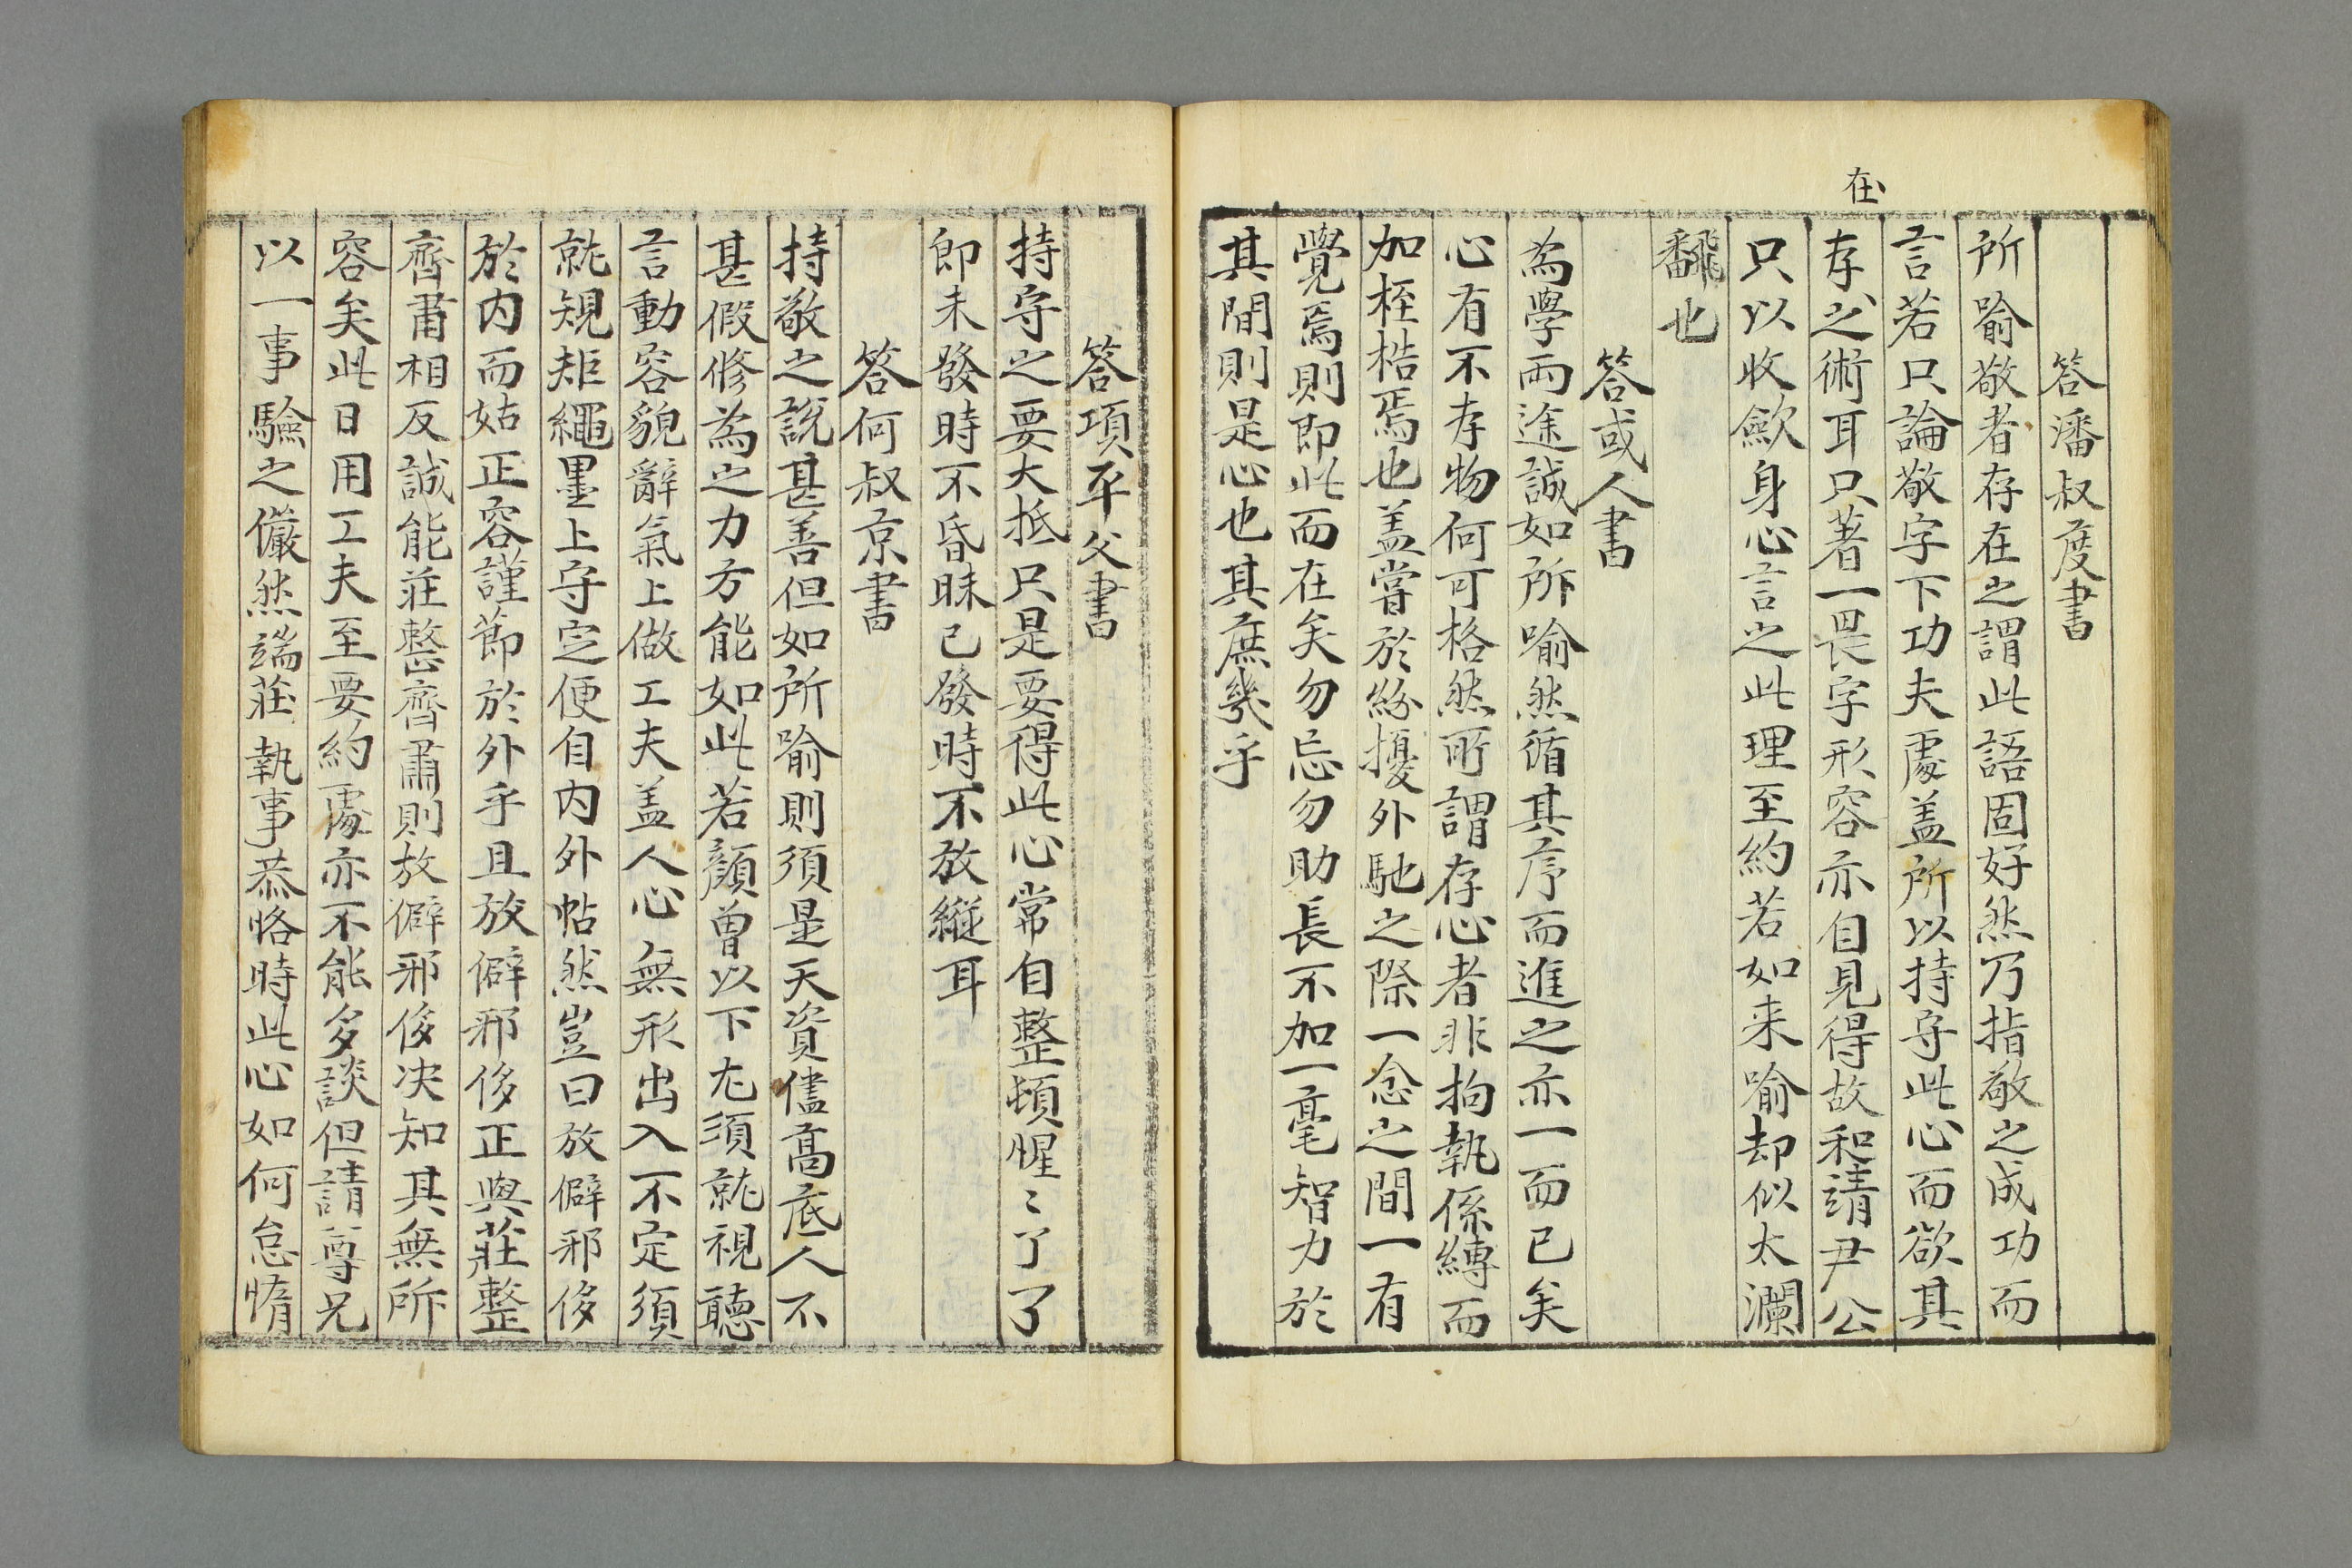 在
答潘叔度書
所喻敬者存在之謂此語固好然乃指敬之成功而
言若只論敬字下功夫處盖所以持守此心而欲其
存之術耳只著一畏字形容亦自見得故和靖尹公
只以收歛身心言之此理至約若如来喻却似太瀾
飜也
答或人書
為學兩途誠如所喻然循其序而進之亦一而已矣
心有不存物何可格然所謂存心者非拘執係縛而
加桎梏焉也盖嘗於紛擾外馳之際一念之間一有
覺焉則即此而在矣勿忘勿助長不加一毫智力於
其間則是心也其庶幾乎
答項平父書
持守之要大抵只是要得此心常自整頓惺〻了了
即未發時不昏昧已發時不放縱耳
答何叔京書
持敬之説甚善但如所喻則須是天資儘高底人不
甚假修為之力方能如此若顔曾以下尤須就視聽
言動容貌辭氣上做工夫盖人心無形出入不定須
就規矩繩墨上守定便自内外帖然豈曰放僻邪侈
於内而姑正容謹節於外乎且放僻邪侈正與莊整
齊肅相反誠能莊整齊肅則放僻邪侈决知其無所
容矣此日用工夫至要約處亦不能多談但請尊兄
以一事驗之儼然端莊執事恭恪時此心如何怠惰